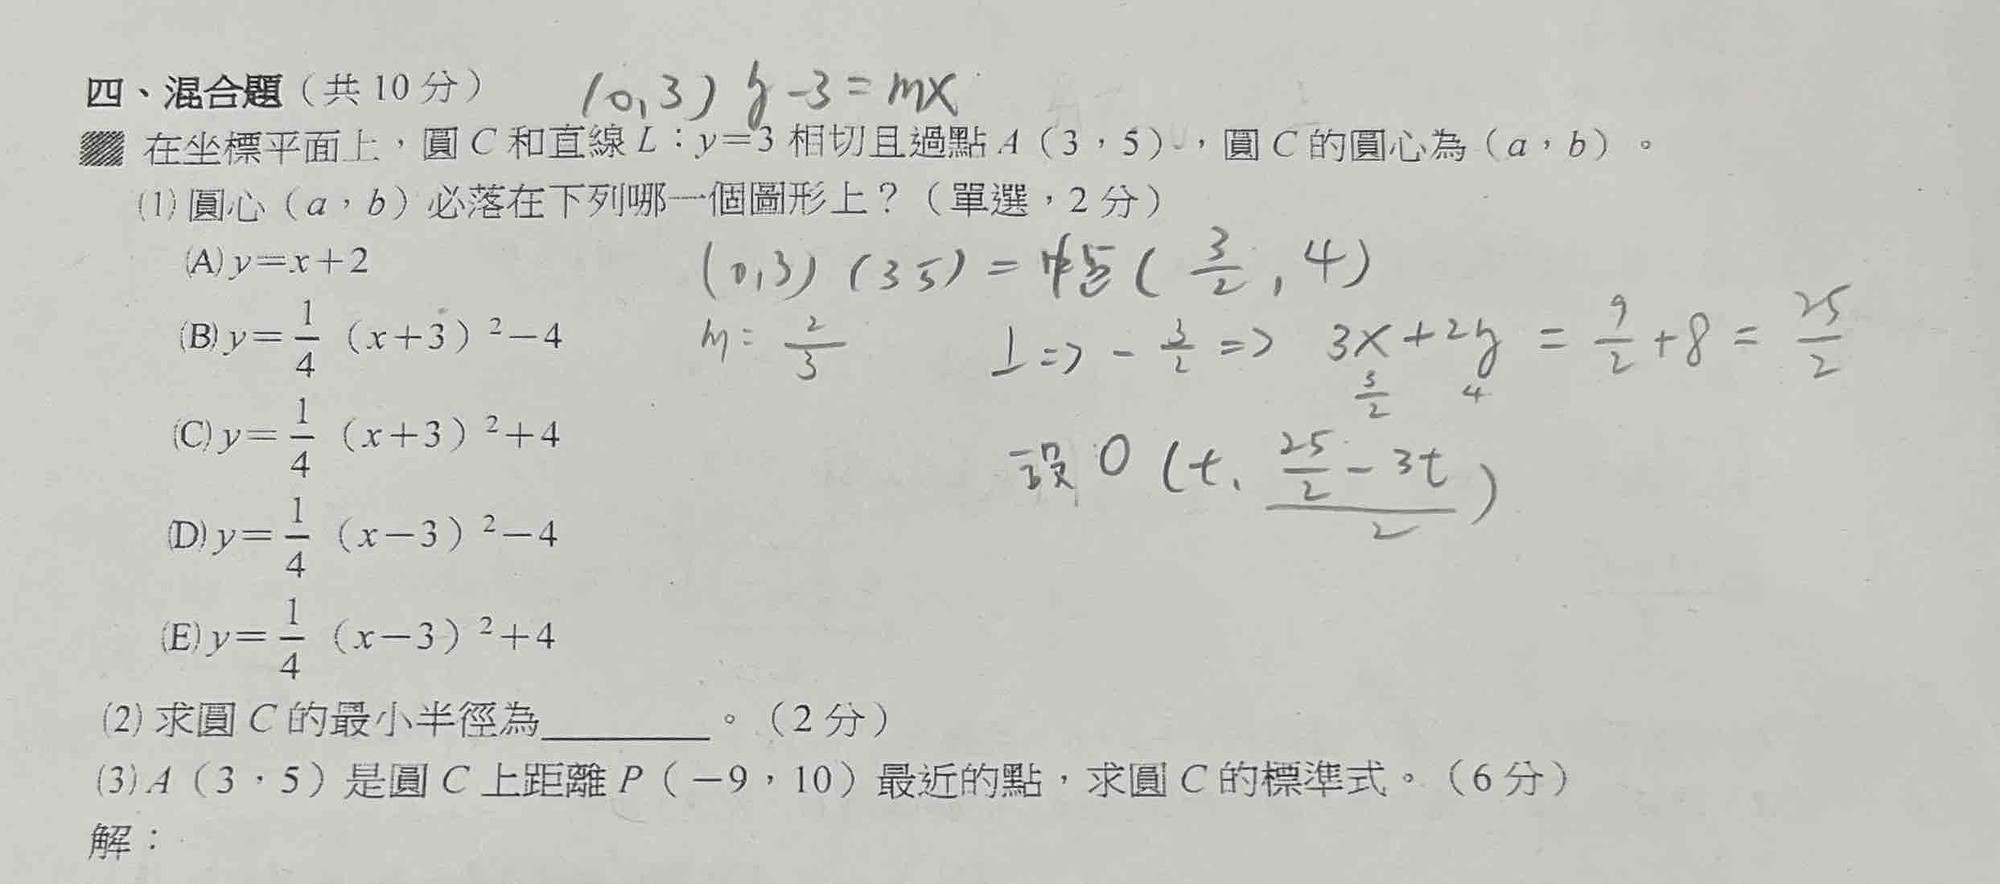 四、混合題（共 10 分） (0,3) y-3=mx
在坐標平面上，圓 C 和直線 L：y＝3 相切且過點 A（3，5），圓 C 的圓心為（a，b）。
(1) 圓心（a，b）必落在下列哪一個圖形上？（單選，2 分）
(A) y＝x＋2
(0,3) (3 5) = 中點 ( 3/2 , 4)
(B) y＝1/4（x＋3）²－4
m = 2/3 ⊥ => - 3/2 => 3x+2y = 9/2 + 8 = 25/2
3/2 4
(C) y＝1/4（x＋3）²＋4
設 O (t, (25/2 - 3t)/2)
(D) y＝1/4（x－3）²－4
(E) y＝1/4（x－3）²＋4
(2) 求圓 C 的最小半徑為________。（2 分）
(3) A（3，5）是圓 C 上距離 P（－9，10）最近的點，求圓 C 的標準式。（6 分）
解：